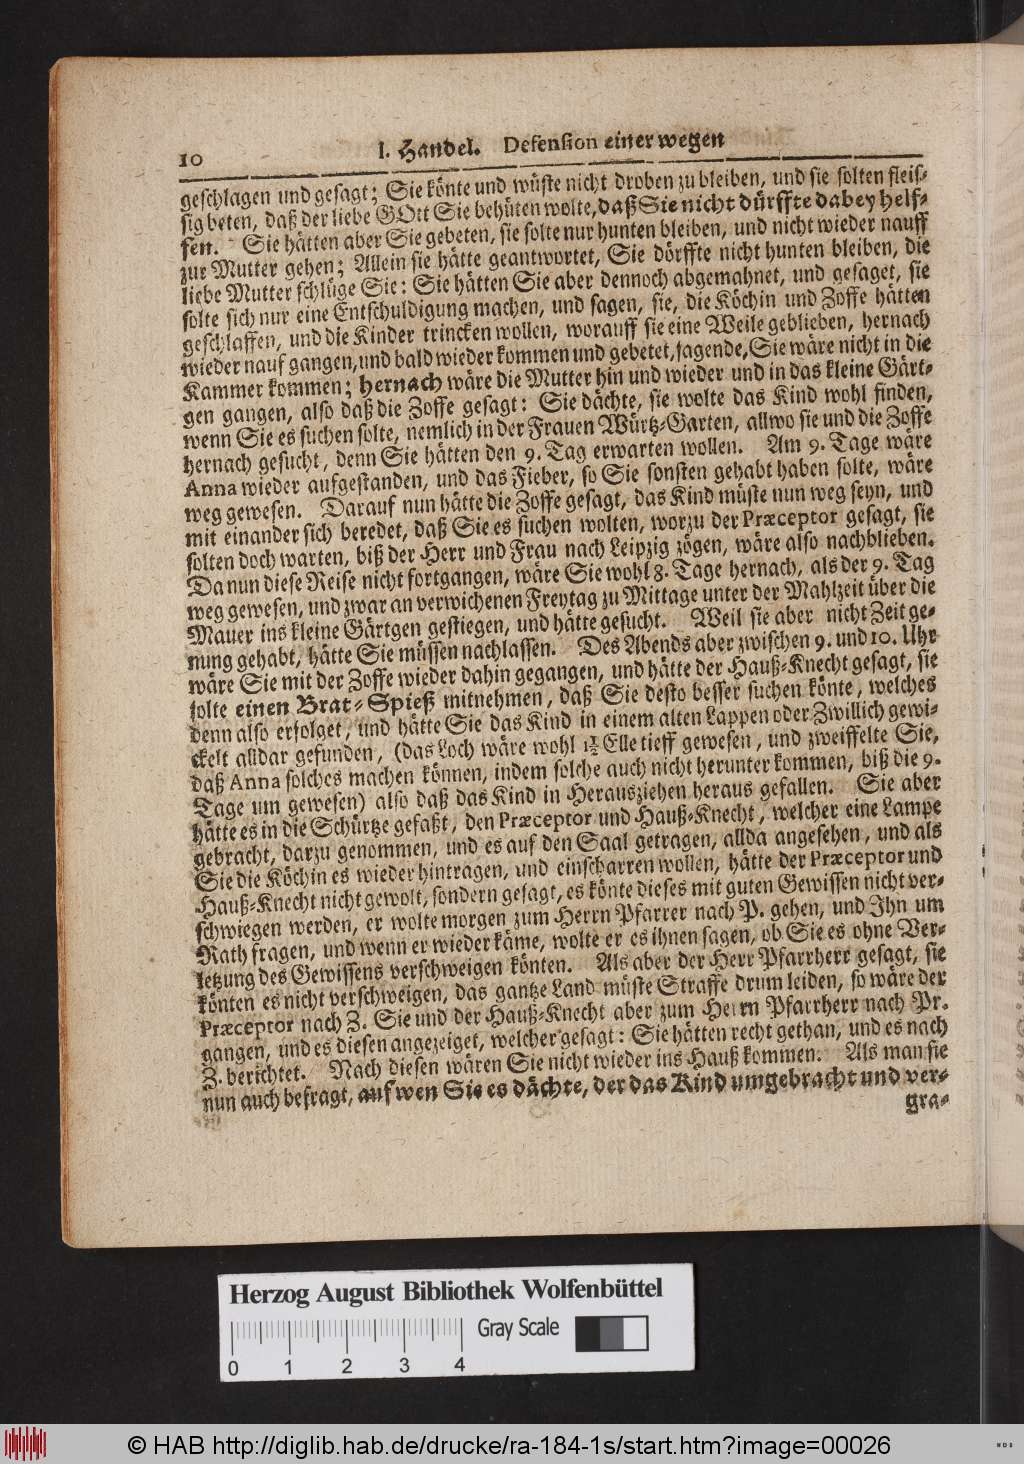 10 I. Handel. Defension einer wegen
geschlagen und gesagt; Sie könte und wüste nicht droben zu bleiben, und sie solten fleis-
sig beten, daß der liebe GOtt Sie behüten wolte, daß Sie nicht dürffte dabey helf-
fen. Sie hätten aber Sie gebeten, sie solte nur hunten bleiben, und nicht wieder nauff
zur Mutter gehen; Allein sie hätte geantwortet, Sie dörffte nicht hunten bleiben, die
liebe Mutter schlüge Sie: Sie hätten Sie aber dennoch abgemahnet, und gesaget, sie
solte sich nur eine Entschuldigung machen, und sagen, sie, die Köchin und Zoffe hätten
geschlaffen, und die Kinder trincken wollen, worauff sie eine Weile geblieben, hernach
wieder nauf gangen, und bald wieder kommen und gebetet, sagende, Sie wäre nicht in die
Kammer kommen; hernach wäre die Mutter hin und wieder und in das kleine Gärt-
gen gangen, also daß die Zoffe gesagt: Sie dächte, sie wolte das Kind wohl finden,
wenn Sie es suchen solte, nemlich in der Frauen Würtz-Garten, allwo sie und die Zoffe
hernach gesucht, denn Sie hätten den 9. Tag erwarten wollen. Am 9. Tage wäre
Anna wieder aufgestanden, und das Fieber, so Sie sonsten gehabt haben solte, wäre
weg gewesen. Darauf nun hätte die Zoffe gesagt, das Kind müste nun weg seyn, und
mit einander sich beredet, daß Sie es suchen wolten, worzu der Præceptor gesagt, sie
solten doch warten, biß der Herr und Frau nach Leipzig zögen, wäre also nachblieben.
Da nun diese Reise nicht fortgangen, wäre Sie wohl 8. Tage hernach, als der 9. Tag
weg gewesen, und zwar an verwichenen Freytag zu Mittage unter der Mahlzeit über die
Mauer ins kleine Gärtgen gestiegen, und hätte gesucht. Weil sie aber nicht Zeit ge-
nung gehabt, hätte Sie müssen nachlassen. Des Abends aber zwischen 9. und 10. Uhr
wäre Sie mit der Zoffe wieder dahin gegangen, und hätte der Hauß-Knecht gesagt, sie
solte einen Brat-Spieß mitnehmen, daß Sie desto besser suchen könte, welches
denn also erfolget, und hätte Sie das Kind in einem alten Lappen oder Zwillich gewi-
ckelt alldar gefunden, (das Loch wäre wohl 1½ Elle tieff gewesen, und zweiffelte Sie,
daß Anna solches machen können, indem solche auch nicht herunter kommen, biß die 9.
Tage um gewesen) also daß das Kind in Herausziehen heraus gefallen. Sie aber
hätte es in die Schürtze gefaßt, den Præceptor und Hauß-Knecht, welcher eine Lampe
gebracht, darzu genommen, und es auf den Saal getragen, allda angesehen, und als
Sie die Köchin es wieder hintragen, und einscharren wollen, hätte der Præceptor und
Hauß-Knecht nicht gewolt, sondern gesagt, es könte dieses mit guten Gewissen nicht ver-
schwiegen werden, er wolte morgen zum Herrn Pfarrer nach P. gehen, und Ihn um
Rath fragen, und wenn er wieder käme, wolte er es ihnen sagen, ob Sie es ohne Ver-
letzung des Gewissens verschweigen könten. Als aber der Herr Pfarrherr gesagt, sie
könten es nicht verschweigen, das gantze Land müste Straffe drum leiden, so wäre der
Præceptor nach Z. Sie und der Hauß-Knecht aber zum Herrn Pfarrherr nach Pr.
gangen, und es diesen angezeiget, welcher gesagt: Sie hätten recht gethan, und es nach
Z. berichtet. Nach diesen wären Sie nicht wieder ins Hauß kommen. Als man sie
nun auch befragt, auf wen Sie es dächte, der das Kind umgebracht und ver-
gra-
Herzog August Bibliothek Wolfenbüttel
Gray Scale
0 1 2 3 4
© HAB http://diglib.hab.de/drucke/ra-184-1s/start.htm?image=00026